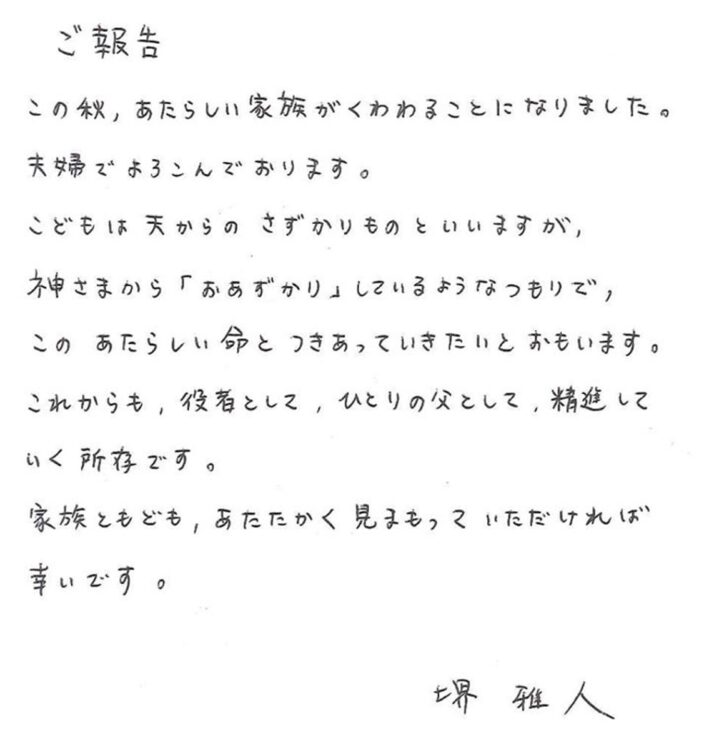 ご報告
この秋,あたらしい家族がくわわることになりました。
夫婦でよろこんでおります。
こどもは天からのさずかりものといいますが,
神さまから「おあずかり」しているようなつもりで,
このあたらしい命とつきあっていきたいとおもいます。
これからも,役者として,ひとりの父として,精進して
いく所存です。
家族ともども,あたたかく見まもっていただければ
幸いです。
堺 雅人